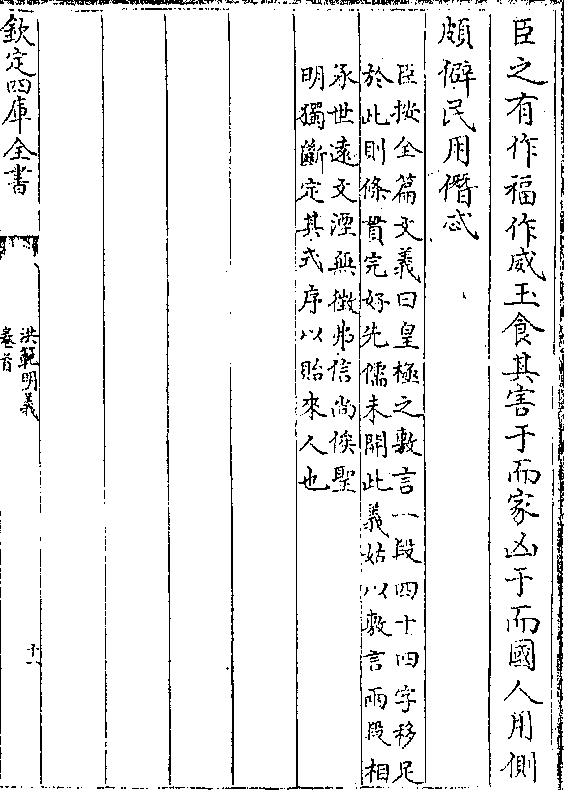 臣之有作福作威玉食其害于而家凶于而國人用側
頗僻民用僭忒
臣按全篇文義曰皇極之敷言一段四十四字移足
於此則條貫完好先儒未開此義姑以敷言兩段相
承世遠文湮無徴弗信尚俟聖
明獨斷定其式序以貽來人也
欽定四庫全書
洪範明義
卷首